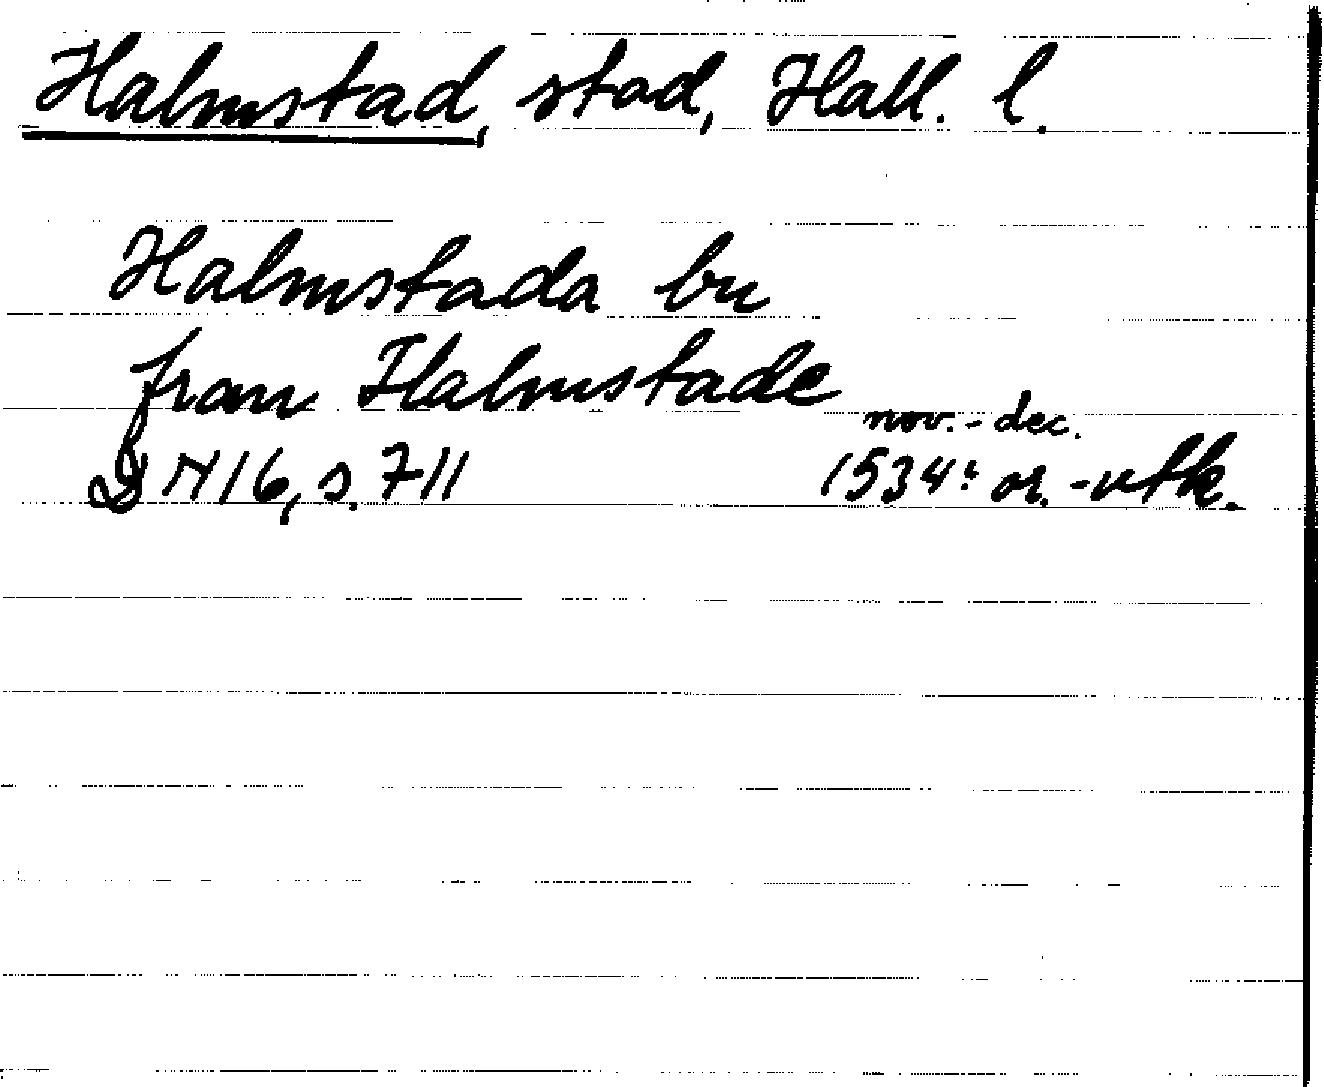 Halmstad, stad, Hall. l.
Halmstada bu
fran Halmstade
nov.-dec.
DN 16, s. 711 1534: or.-utk.